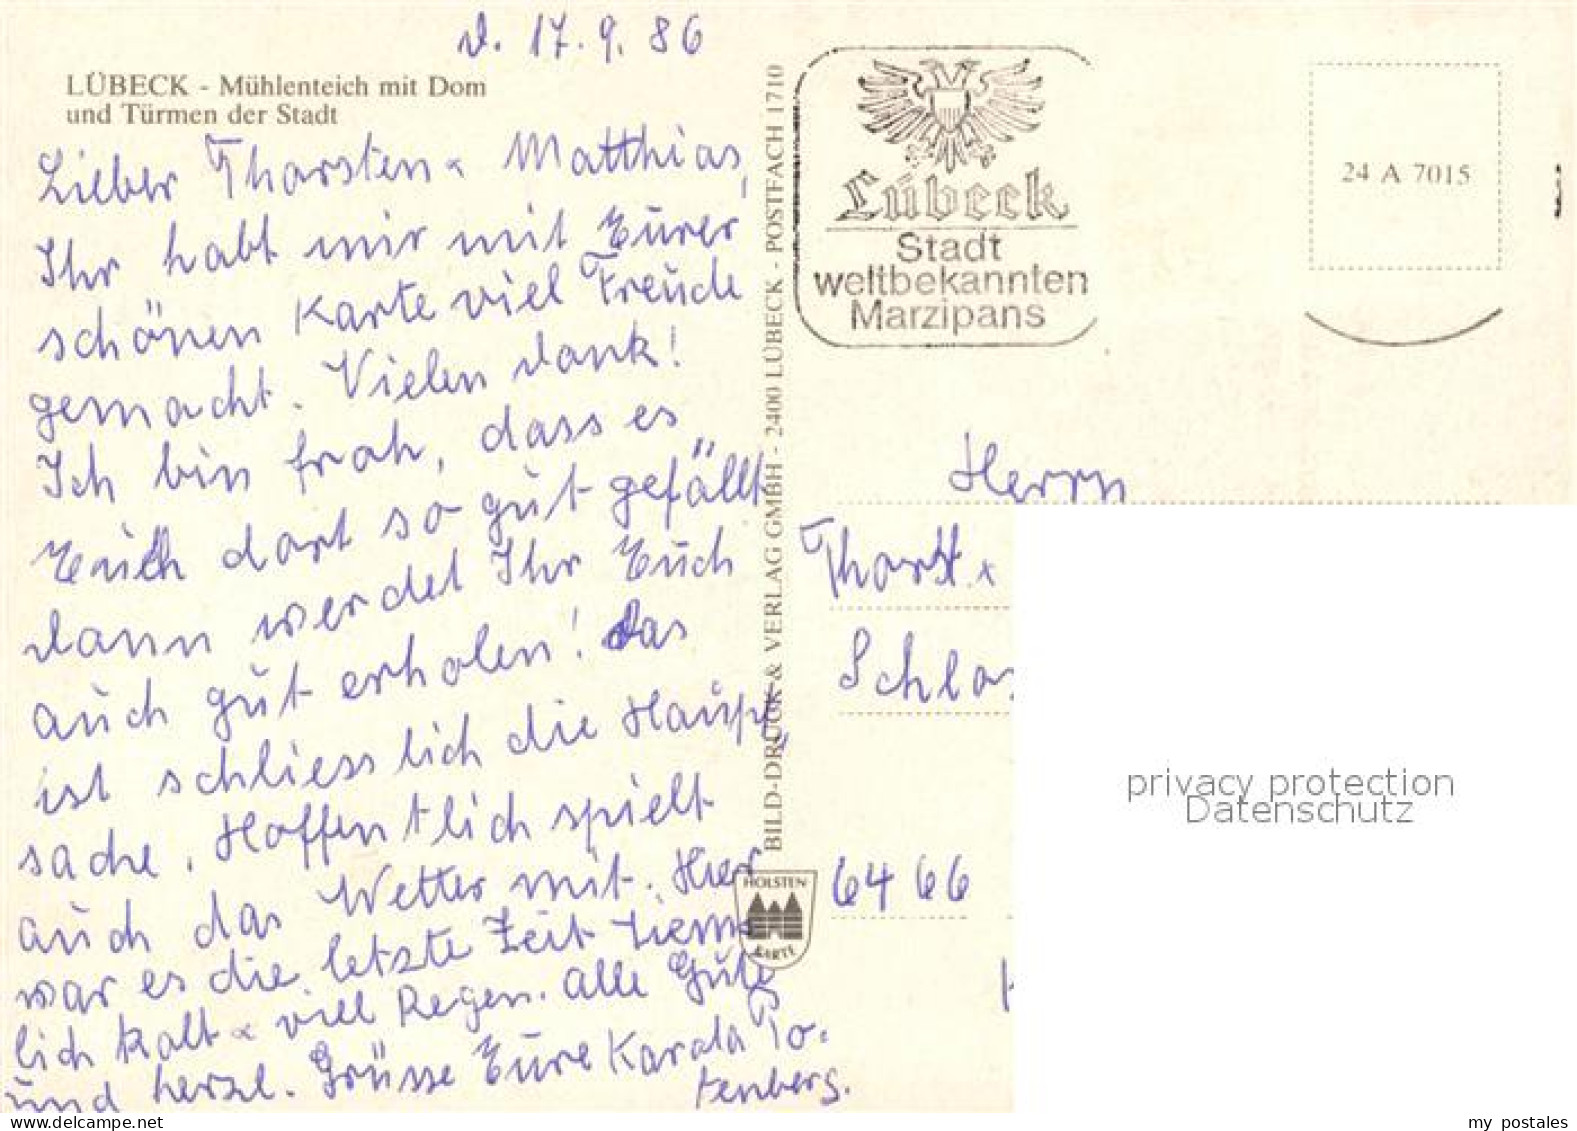 d. 17.9.86
LÜBECK - Mühlenteich mit Dom
und Türmen der Stadt
Lieber Thorsten & Matthias,
Ihr habt mir mit Eurer
schönen Karte viel Freude
gemacht. Vielen Dank!
Ich bin froh, dass es
Euch dort so gut gefällt
dann werdet Ihr Euch
auch gut erholen! Das
ist schliesslich die Haupt
sache. Hoffentlich spielt
auch das Wetter mit. Hier
war es die letzte Zeit ziem
lich kalt & viel Regen. Alle Gute
und herzl. Grüsse Eure Karola To-
tenberg.
BILD-DRUCK & VERLAG GMBH - 2400 LÜBECK - POSTFACH 1710
HOLSTEN-
KARTE
Lübeck
Stadt
weltbekannten
Marzipans
24 A 7015
Herrn
Thorst. &
Schlos
64 66
privacy protection
Datenschutz
my postales
www.delcampe.net